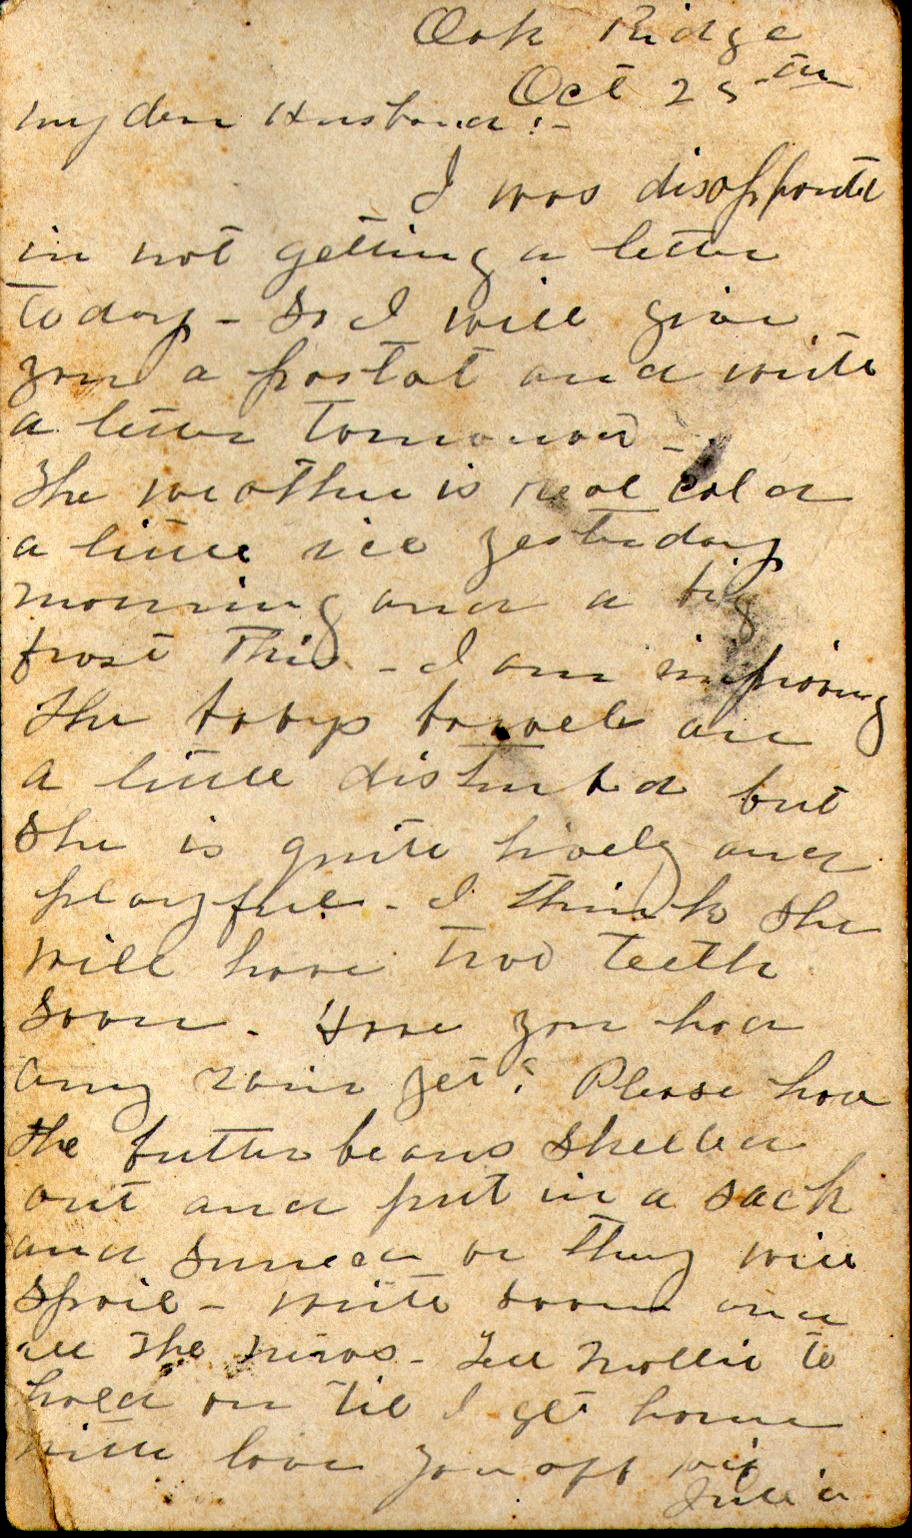 Oak Ridge
Oct 25th
My dear Husband:-
I was disappointed
in not getting a letter
today - So I will give
you a postal and write
a letter tomorrow -
The weather is real cold
a little ice yesterday
morning and a big
frost this - I am improving
The babys bowels are
a little disturbed but
she is quite lively and
playful - I think she
will have two teeth
soon. Have you had
any rain yet? Please have
the butterbeans shelled
out and put in a sack
and sunned or they will
spoil - write soon and
all the news - Tell Mollie to
hold on 'til I get home
with love your aff wif
Julia